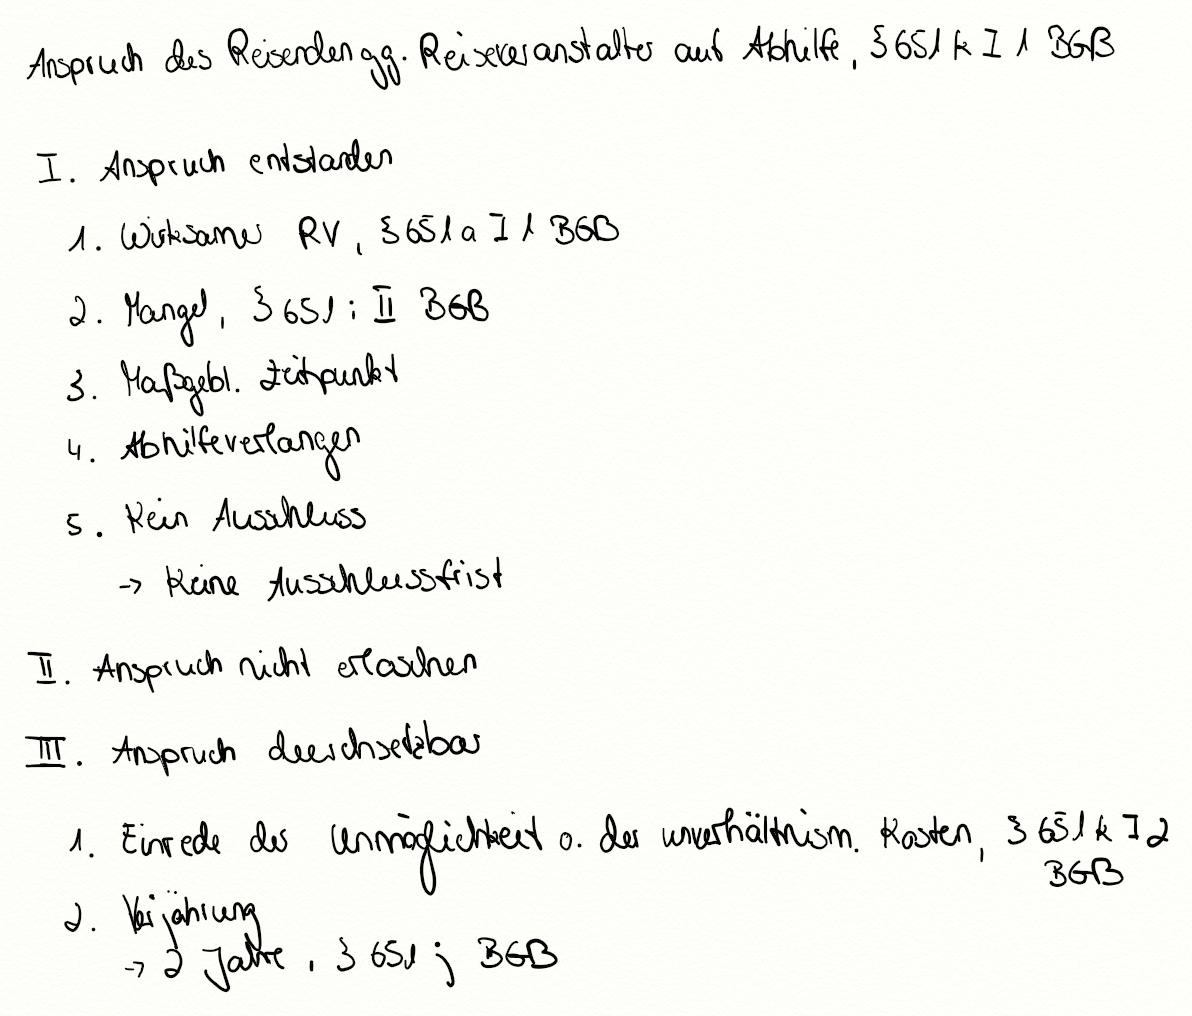 Anspruch des Reisenden gg. Reiseveranstalter auf Abhilfe, § 651 k I 1 BGB
I. Anspruch entstanden
1. Wirksamer RV, § 651 a I 1 BGB
2. Mangel, § 651 i II BGB
3. Maßgebl. Zeitpunkt
4. Abhilfeverlangen
5. Kein Ausschluss
→ Keine Ausschlussfrist
II. Anspruch nicht erloschen
III. Anspruch durchsetzbar
1. Einrede der Unmöglichkeit o. der unverhältnism. Kosten, § 651 k I 2
BGB
2. Verjährung
→ 2 Jahre, § 651 j BGB